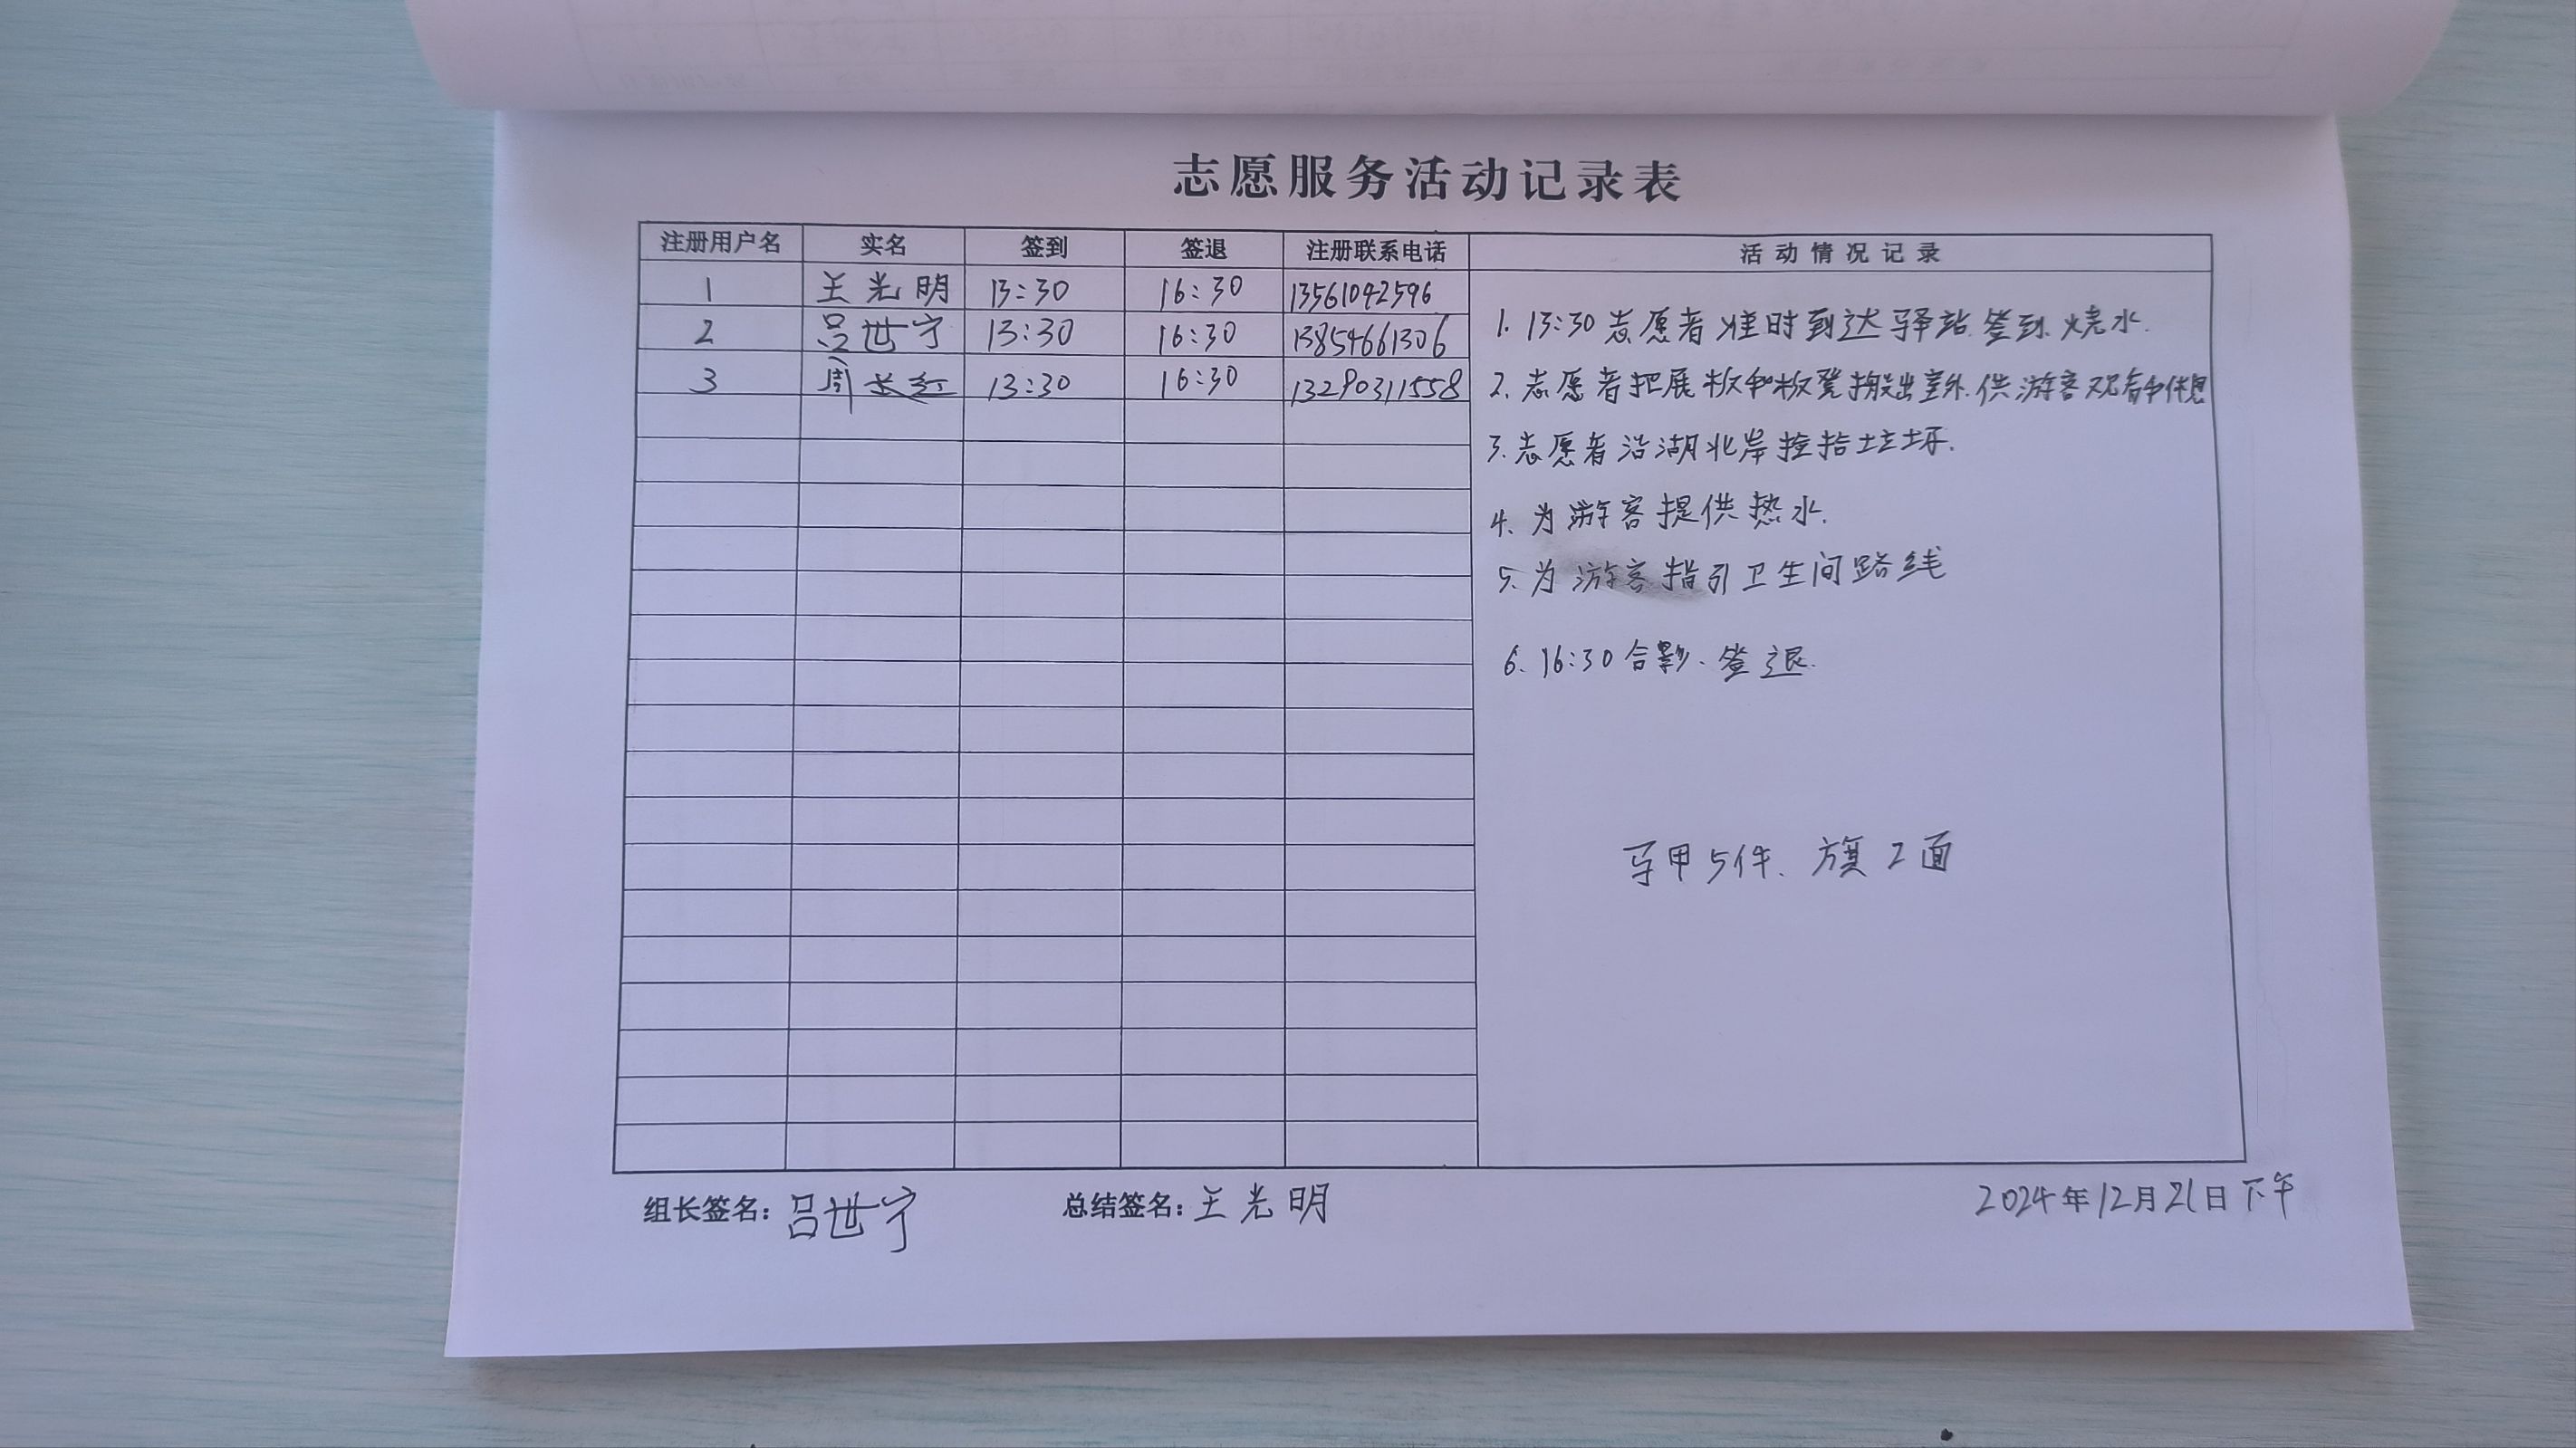 志愿服务活动记录表
注册用户名 实名 签到 签退 注册联系电话 活动情况记录
1 王光明 13:30 16:30 13561042596
2 吕世宁 13:30 16:30 13854661306
3 周长红 13:30 16:30 13290311558
1. 13:30志愿者准时到达驿站.签到.烧水.
2. 志愿者把展板和板凳搬出室外.供游客观看和休息
3. 志愿者沿湖北岸捡拾垃圾.
4. 为游客提供热水.
5. 为游客指引卫生间路线
6. 16:30合影、签退.
马甲5件、旗2面
组长签名：吕世宁 总结签名：王光明 2024年12月21日下午